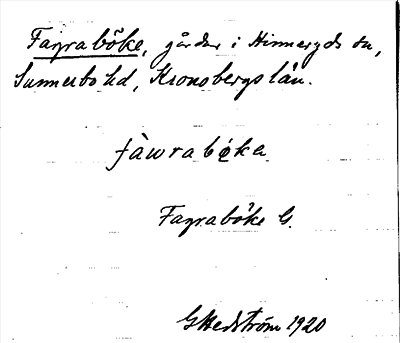 Fagraböke, gårdar i Hinneryds sn,
Sunnerbo hd, Kronobergs län.
fàwrabøka
Fagraböke G.
G Hedström 1920